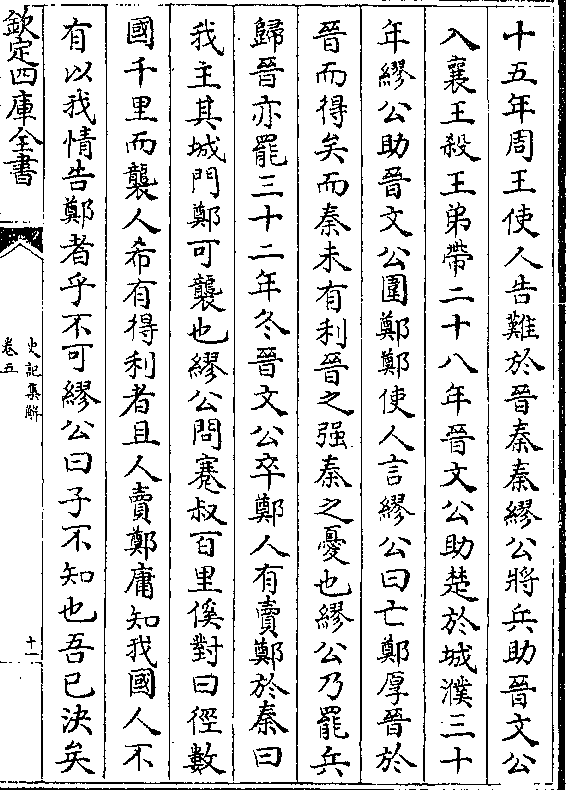 十五年周王使人告難於晉秦秦繆公將兵助晉文公
入襄王殺王弟帶二十八年晉文公助楚於城濮三十
年繆公助晉文公圍鄭鄭使人言繆公曰亡鄭厚晉於
晉而得矣而秦未有利晉之强秦之憂也繆公乃罷兵
歸晉亦罷三十二年冬晉文公卒鄭人有賣鄭於秦曰
我主其城門鄭可襲也繆公問蹇叔百里傒對曰徑數
國千里而襲人希有得利者且人賣鄭庸知我國人不
有以我情告鄭者乎不可繆公曰子不知也吾已決矣
欽定四庫全書
史記集解
卷五
十一